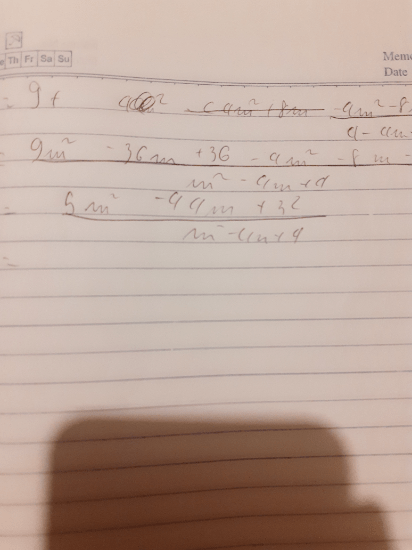 Th Fr Sa Su
Memo
Date
= 9 +
-4m² - 8
4 - 4m
= 9m² - 36m + 36 - 4m² - 8m -
m² - 4m + 4
= 5m² - 44m + 32
m² - 4m + 4
=